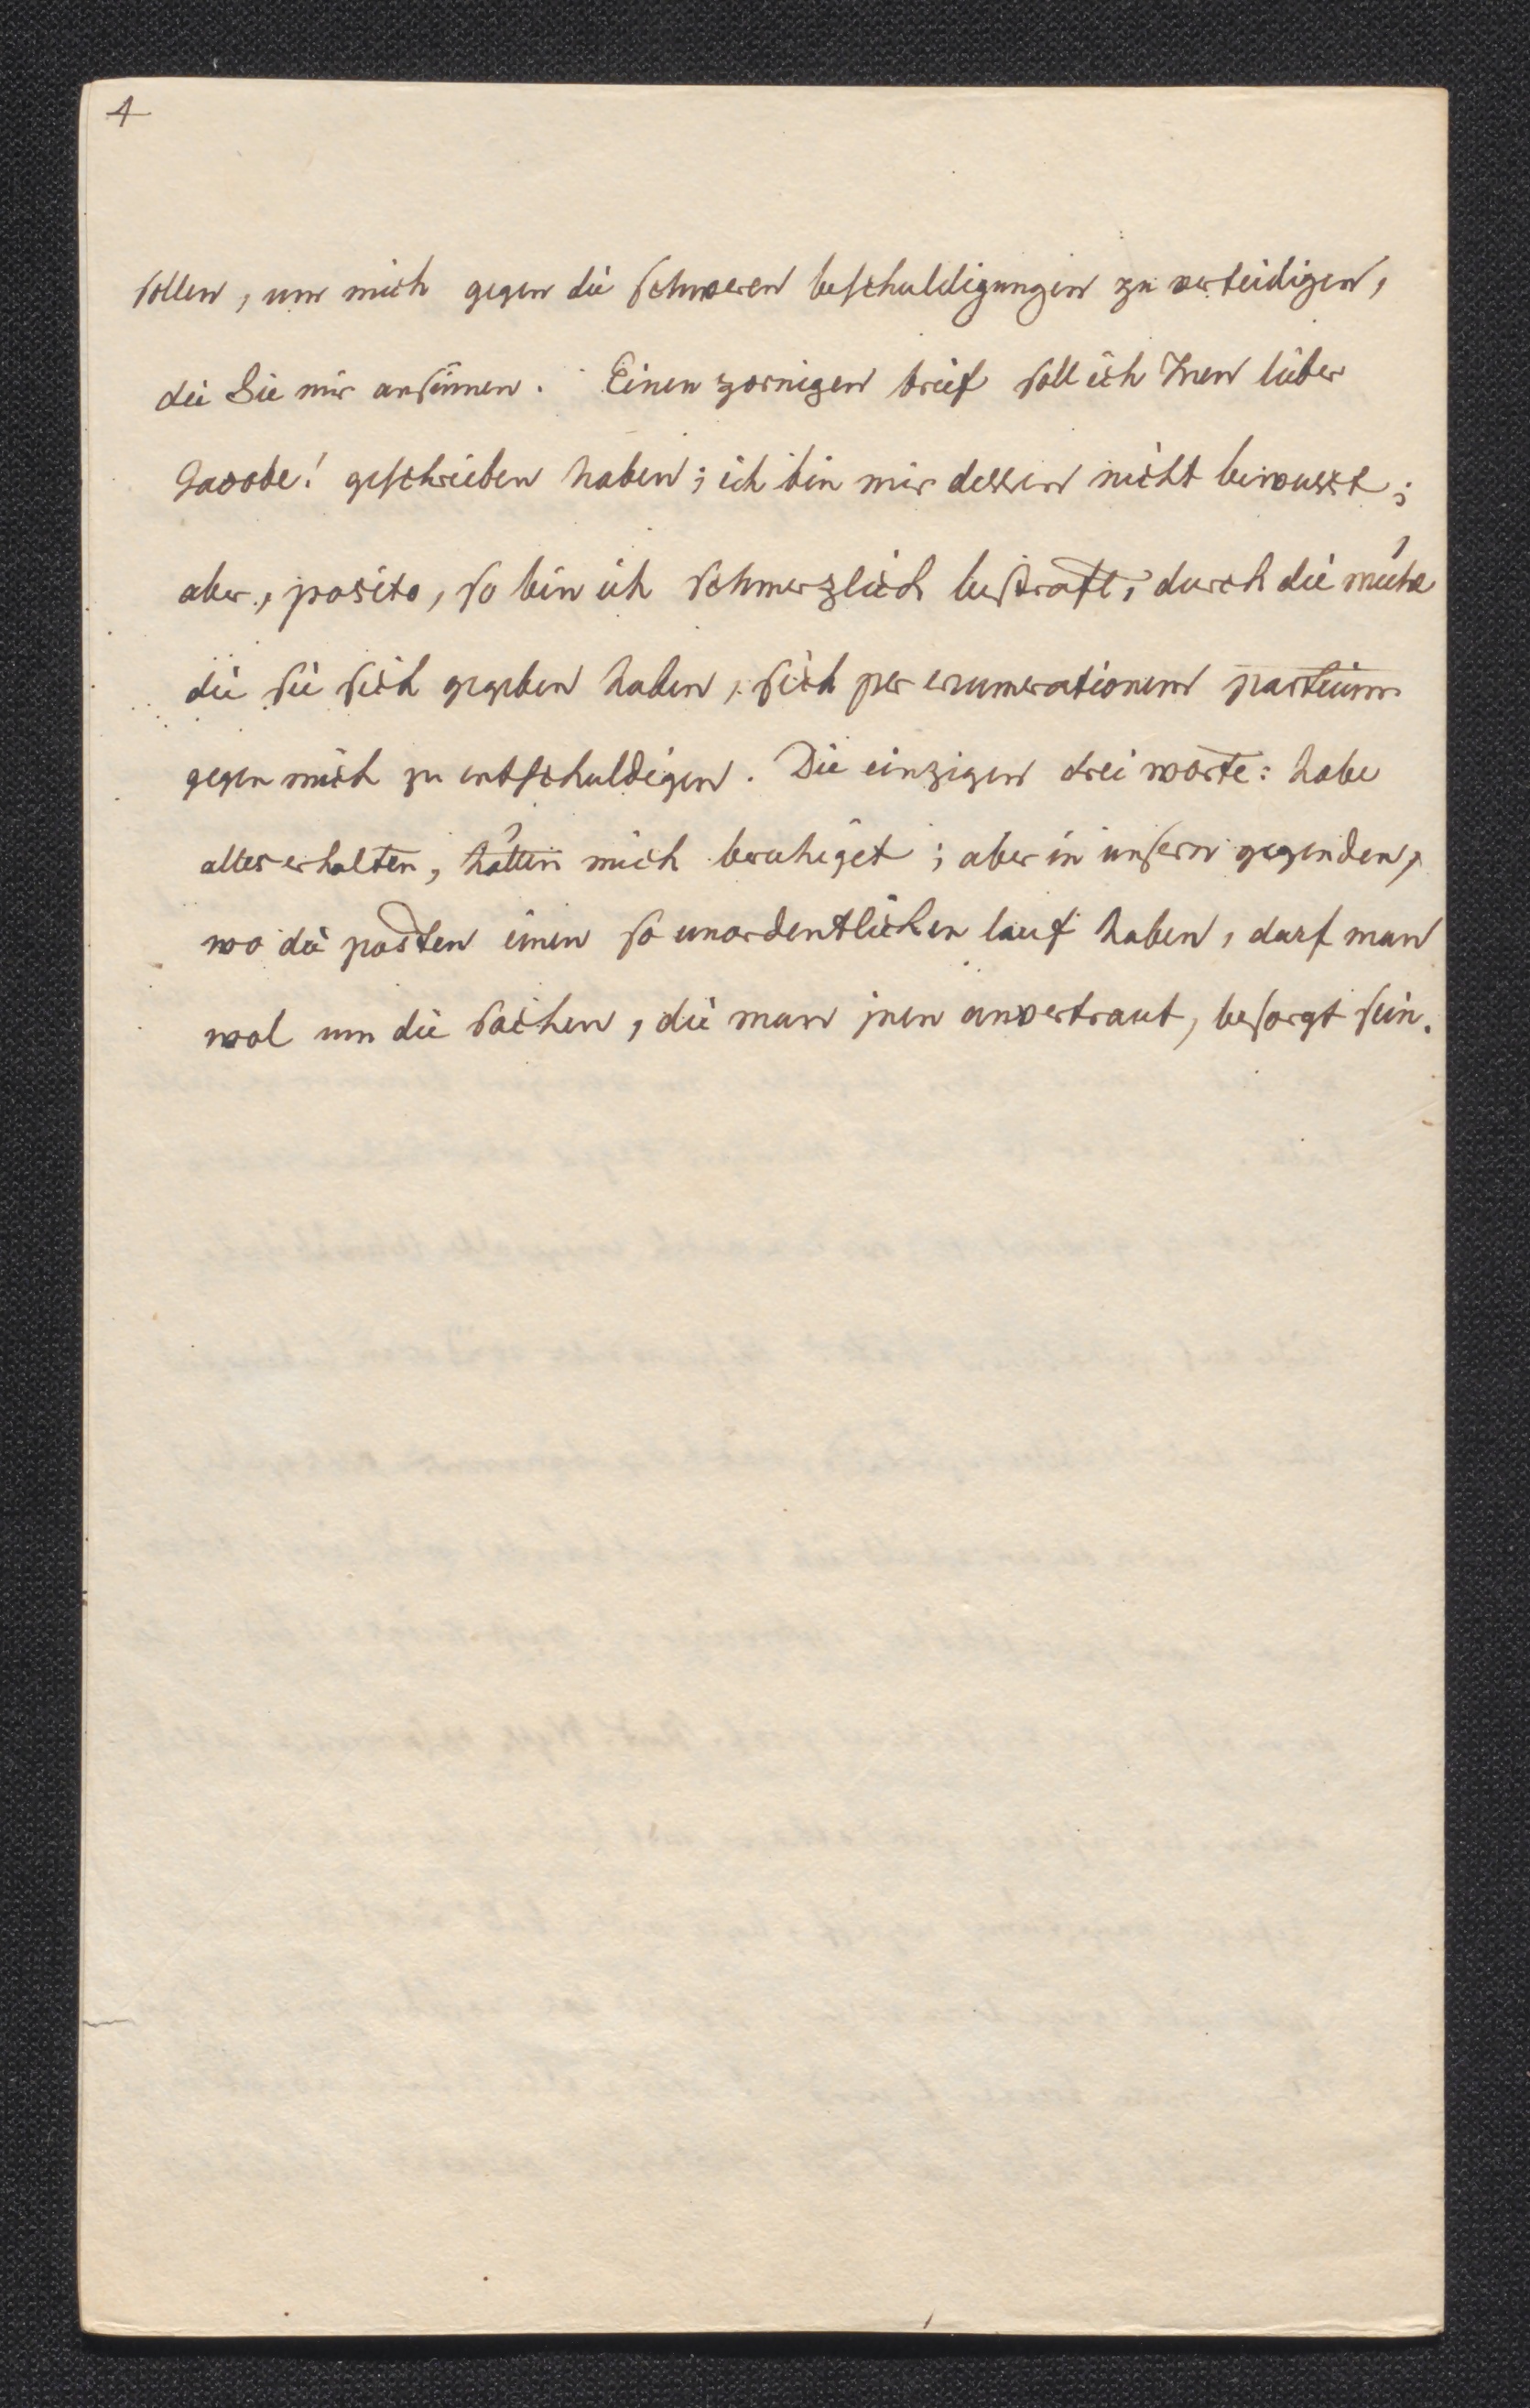 4
sollen, um mich gegen die schweren beschuldigungen zu verteidigen,
die Sie mir ansinnen. Einen zornigen brief soll ich Inen lieber
Jacobe! geschrieben haben; ich bin mir dessen nicht bewusst;
aber, posito, so bin ich schmerzlich bestraft, durch die mühe
die sie sich gegeben haben, sich per enumerationem partium
gegen mich zu entschuldigen. Die einzigen drei worte: habe
alles erhalten, hätten mich beruhiget; aber in unsern gegenden,
wo die posten einen so unordentlichen lauf haben, darf man
wol um die sachen, die man jnen anvertraut, besorgt sein.